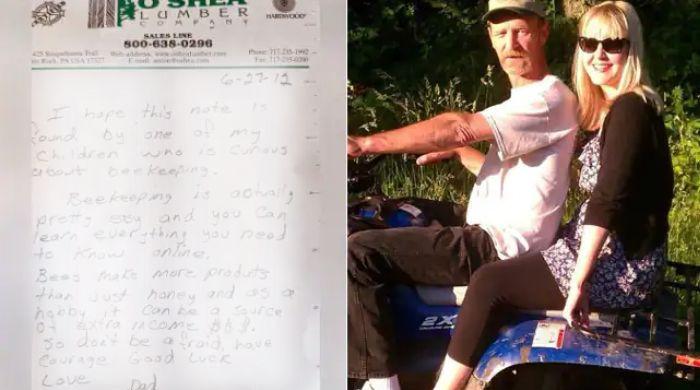 O'SHEA
LUMBER
COMPANY
HARDWOOD
SALES LINE
800-638-0296
Phone: 717-235-1992
Fax: 717-235-0290
6-27-12
I hope this note is
found by one of my
children who is curious
about beekeeping.
Beekeeping is actually
pretty easy and you can
learn everything you need
to know online.
Bees make more products
than just honey and as a
hobby it can be a source
of extra income $$$.
So don't be afraid, have
courage Good Luck
Love Dad
2X